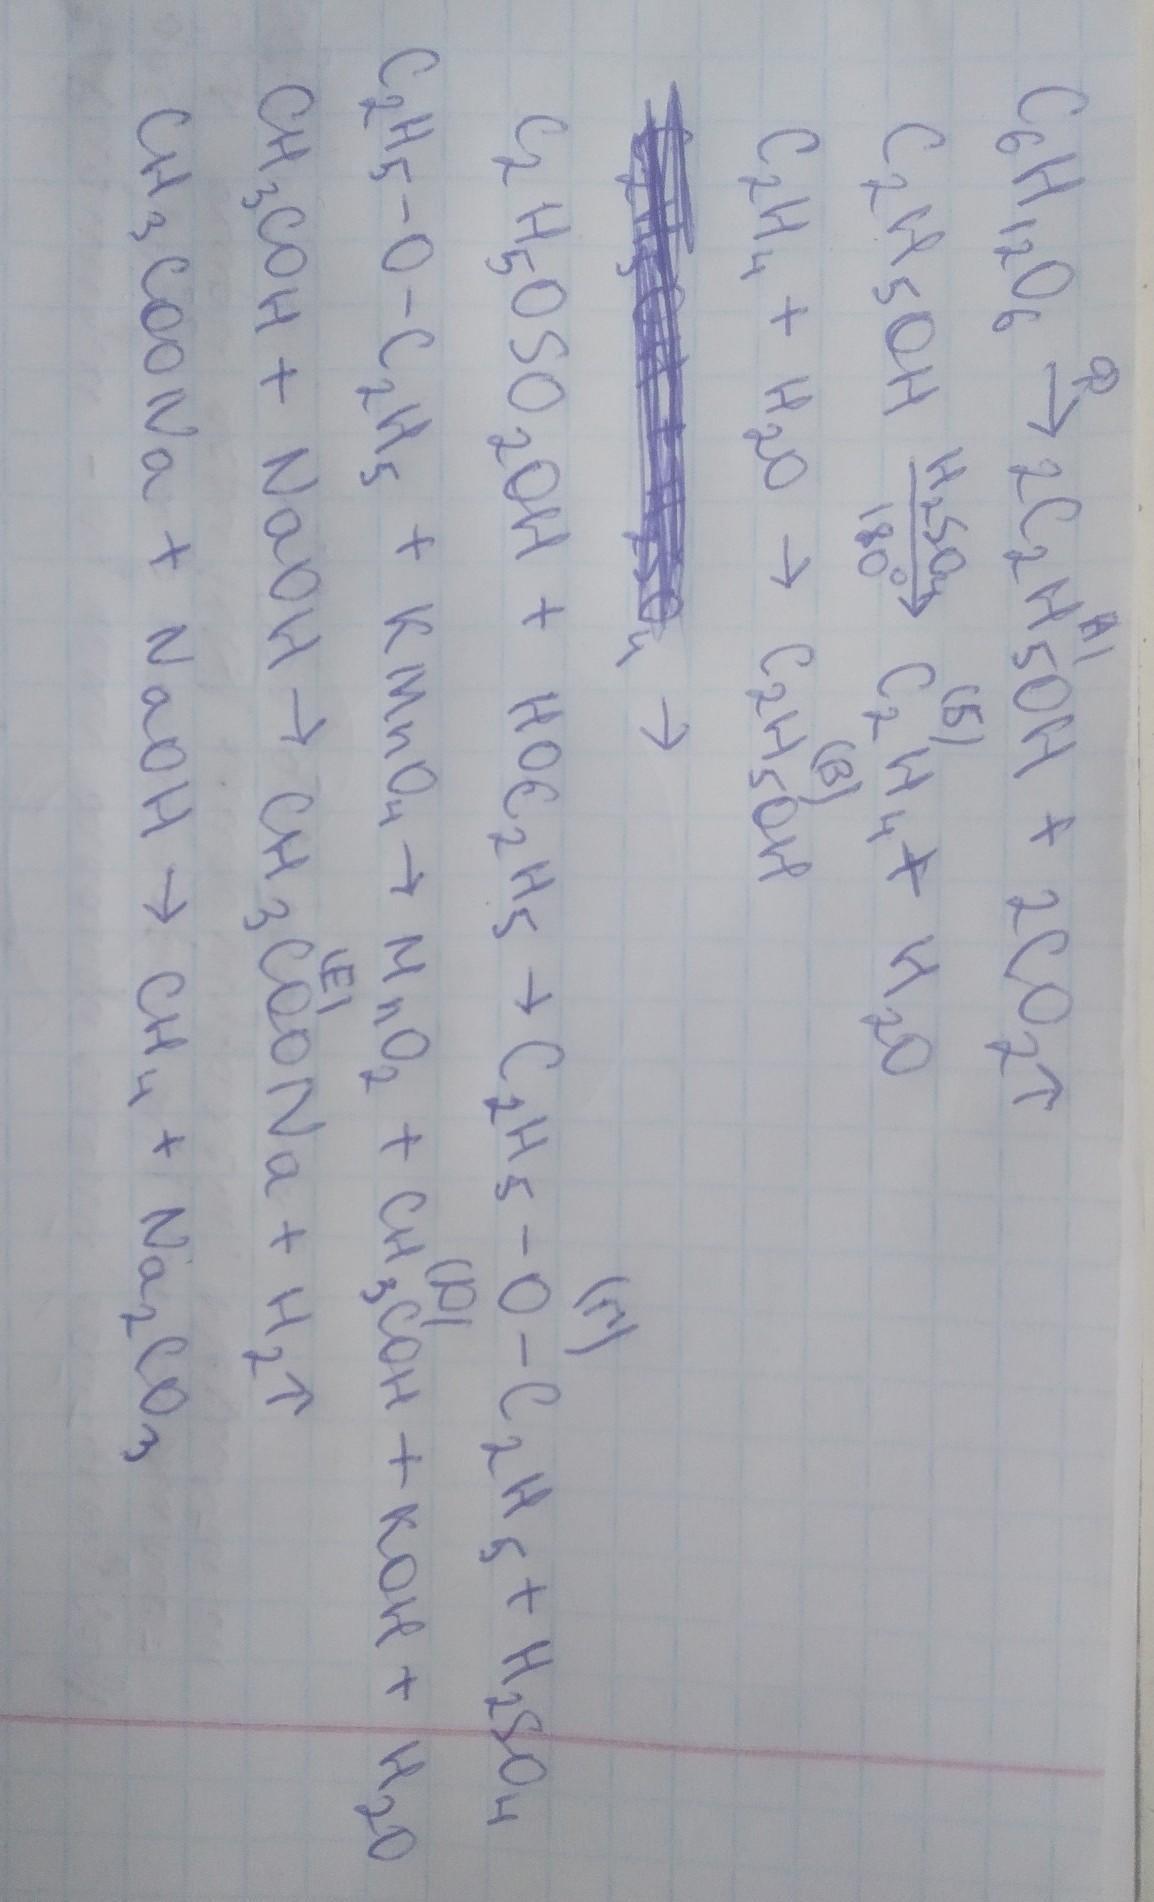 C₆H₁₂O₆ → 2C₂H₅OH + 2CO₂↑
A)
C₂H₅OH H₂SO₄ 180° → C₂H₄ + H₂O
(Б)
C₂H₄ + H₂O → C₂H₅OH
(В)
→
C₂H₅OSO₂OH + HOC₂H₅ → C₂H₅-O-C₂H₅ + H₂SO₄
(Г)
C₂H₅-O-C₂H₅ + KMnO₄ → MnO₂ + CH₃COH + KOH + H₂O
(D)
CH₃COH + NaOH → CH₃COONa + H₂↑
(E)
CH₃COONa + NaOH → CH₄ + Na₂CO₃